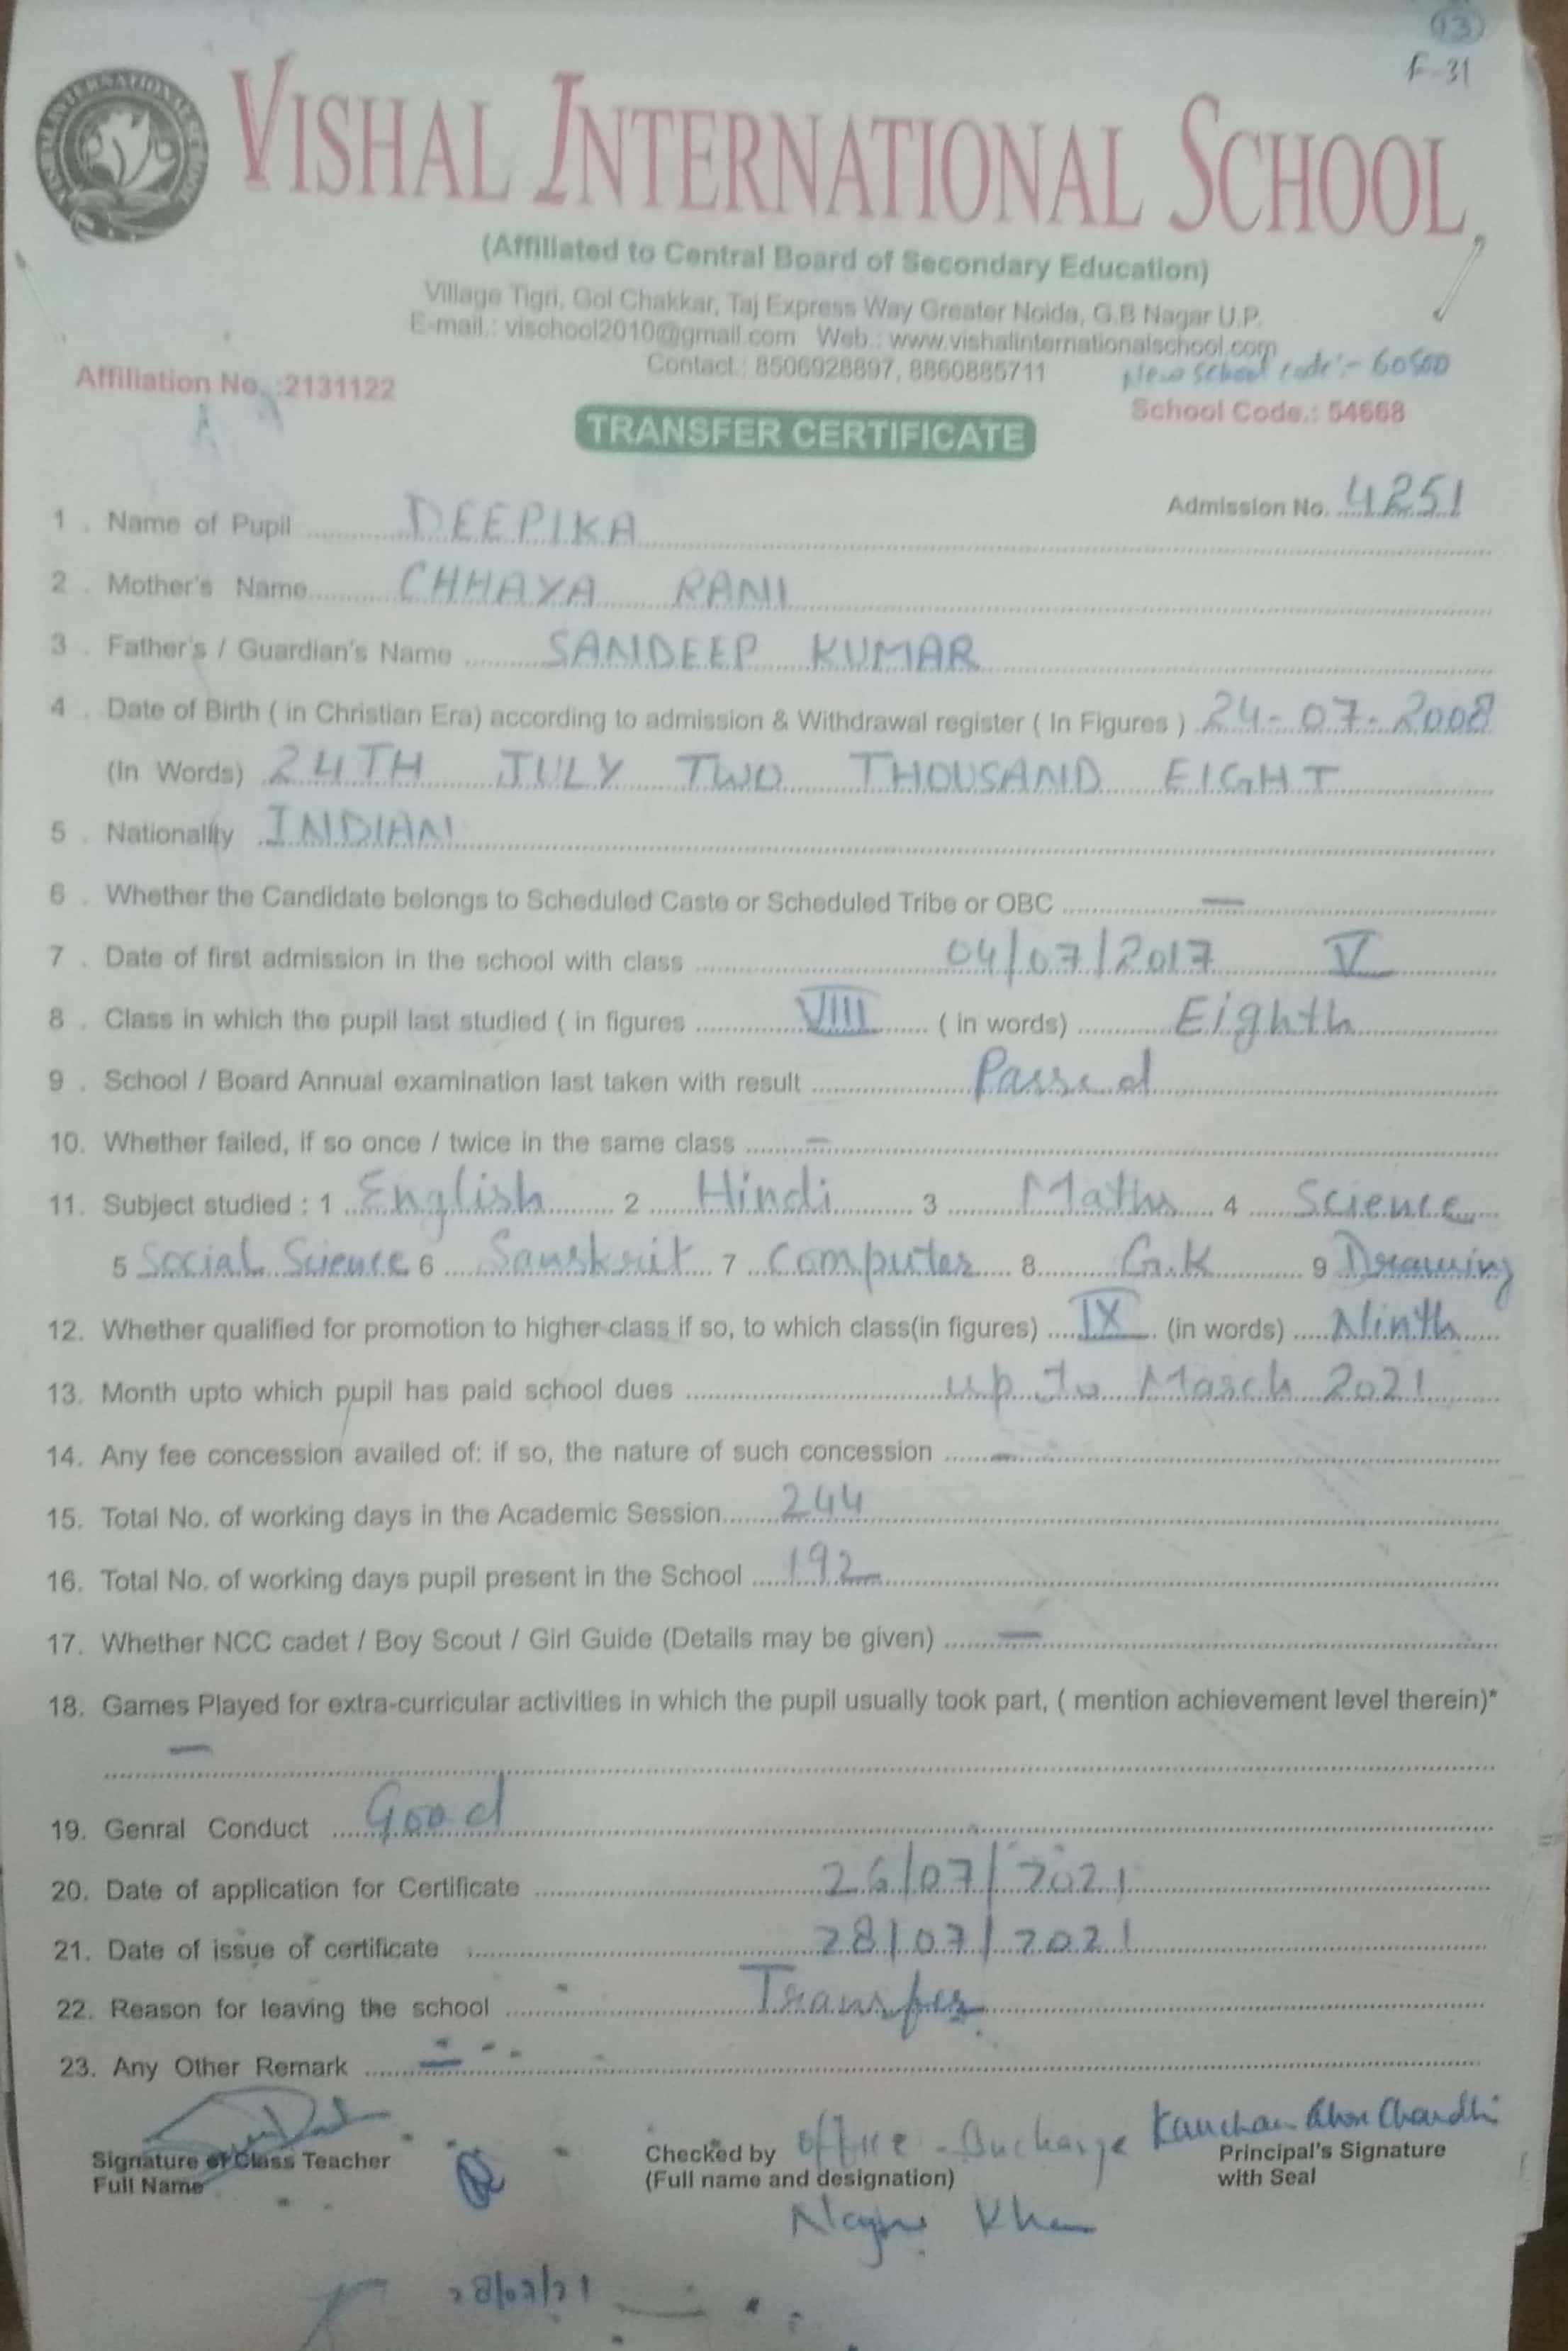 13
F-31
VISHAL INTERNATIONAL SCHOOL
(Affiliated to Central Board of Secondary Education)
Village Tigri, Gol Chakkar, Taj Express Way Greater Noida, G.B Nagar U.P.
E-mail.: vischool2010@gmail.com Web.: www.vishalinternationalschool.com
Contact.: 8506928897, 8860885711
New School code:- 60500
Affiliation No. :2131122
School Code.: 54668
TRANSFER CERTIFICATE
Admission No. 4251
1 . Name of Pupil DEEPIKA
2 . Mother's Name CHHAYA RANI
3 . Father's / Guardian's Name SANDEEP KUMAR
4 . Date of Birth ( in Christian Era) according to admission & Withdrawal register ( In Figures ) 24-07-2008
(In Words) 24TH JULY TWO THOUSAND EIGHT
5 . Nationality INDIAN
6 . Whether the Candidate belongs to Scheduled Caste or Scheduled Tribe or OBC —
7 . Date of first admission in the school with class 04/07/2017 V
8 . Class in which the pupil last studied ( in figures VIII ( in words) Eighth
9 . School / Board Annual examination last taken with result Passed
10. Whether failed, if so once / twice in the same class —
11. Subject studied : 1 English 2 Hindi 3 Maths 4 Science
5 Social Science 6 Sanskrit 7 Computer 8 G.K 9 Drawing
12. Whether qualified for promotion to higher class if so, to which class(in figures) IX (in words) Ninth
13. Month upto which pupil has paid school dues up to March 2021
14. Any fee concession availed of: if so, the nature of such concession —
15. Total No. of working days in the Academic Session 244
16. Total No. of working days pupil present in the School 192
17. Whether NCC cadet / Boy Scout / Girl Guide (Details may be given) —
18. Games Played for extra-curricular activities in which the pupil usually took part, ( mention achievement level therein)*
—
19. Genral Conduct Good
20. Date of application for Certificate 26/07/2021
21. Date of issue of certificate 28/07/2021
22. Reason for leaving the school Transfer
23. Any Other Remark —
Signature of Class Teacher
Full Name
Checked by office
(Full name and designation)
Khan
Kanchan
Principal's Signature
with Seal
28/07/21